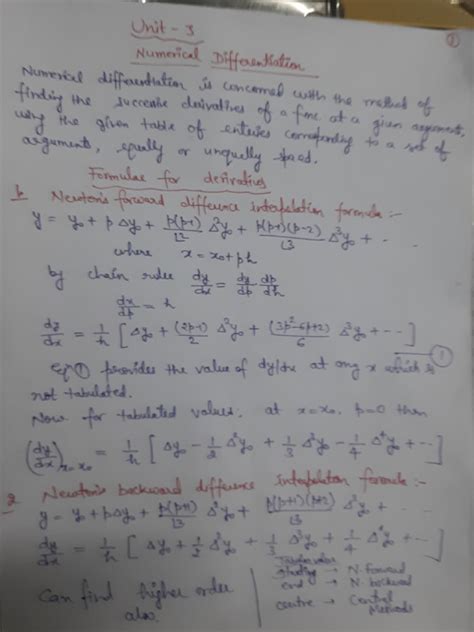 Unit - 3
Numerical Differentiation
Numerical differentiation is concerned with the method of
finding the successive derivatives of a func at a given argument,
using the given table of enteries corresponding to a set of
arguments, equally or unequally spaced.
Formulae for derivatives
1. Newton's forward difference interpolation formula :-
y = y₀ + pΔy₀ + p(p-1)/L2 Δ²y₀ + p(p-1)(p-2)/L3 Δ³y₀ + - -
where x = x₀ + ph
by chain rule dy/dx = dy/dp dp/dh
dx/dp = h
dy/dx = 1/h [ Δy₀ + (2p-1)/2 Δ²y₀ + (3p²-6p+2)/6 Δ³y₀ + - - ] ①
Eqn ① provides the value of dy/dx at any x which is
not tabulated.
Now for tabulated values, at x=x₀, p=0 then
(dy/dx)x=x₀ = 1/h [ Δy₀ - 1/2 Δ²y₀ + 1/3 Δ³y₀ - 1/4 Δ⁴y₀ + - - ]
2. Newton's backward difference interpolation formula :-
y = y₀ + pΔy₀ + p(p+1)/L3 Δ²y₀ + p(p+1)(p+2)/L3 Δ³y₀ + - -
dy/dx = 1/h [ Δy₀ + 1/2 Δ²y₀ + 1/3 Δ³y₀ + 1/4 Δ⁴y₀ + - - ]
Can find higher order
also.
value
starting → N. forward
end → N. backward
centre → Central
Methods